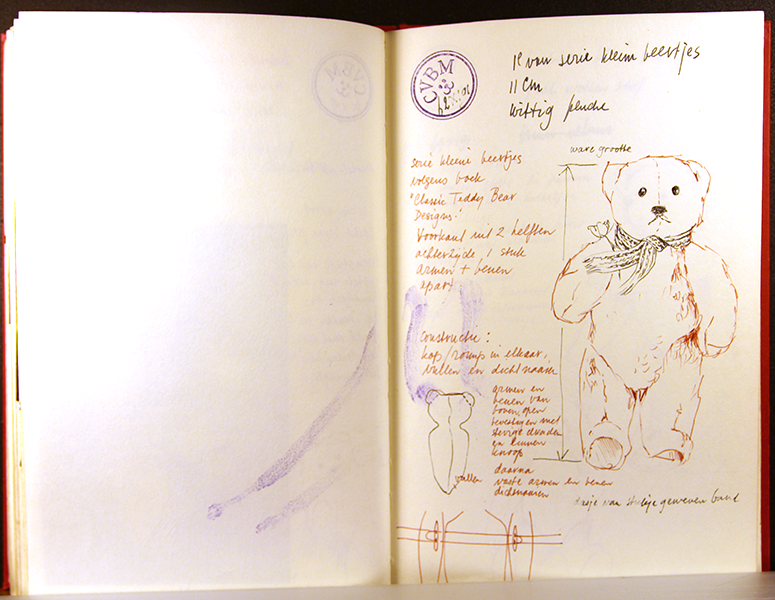 CVBM
1e van serie kleine beertjes
11 cm
wittig pluche
ware grootte
serie kleine beertjes
volgens boek
"Classic Teddy Bear
Designs."
Voorkant uit 2 helften
achterzijde 1 stuk
armen + benen
apart
constructie:
kop/romp in elkaar,
vullen en dichtnaaien
armen en
benen van
boven open
bevestigen met
stevige draden
en
knoop
daarna
vaste armen en benen
dichtnaaien
vullen
dasje van stukje geweven band